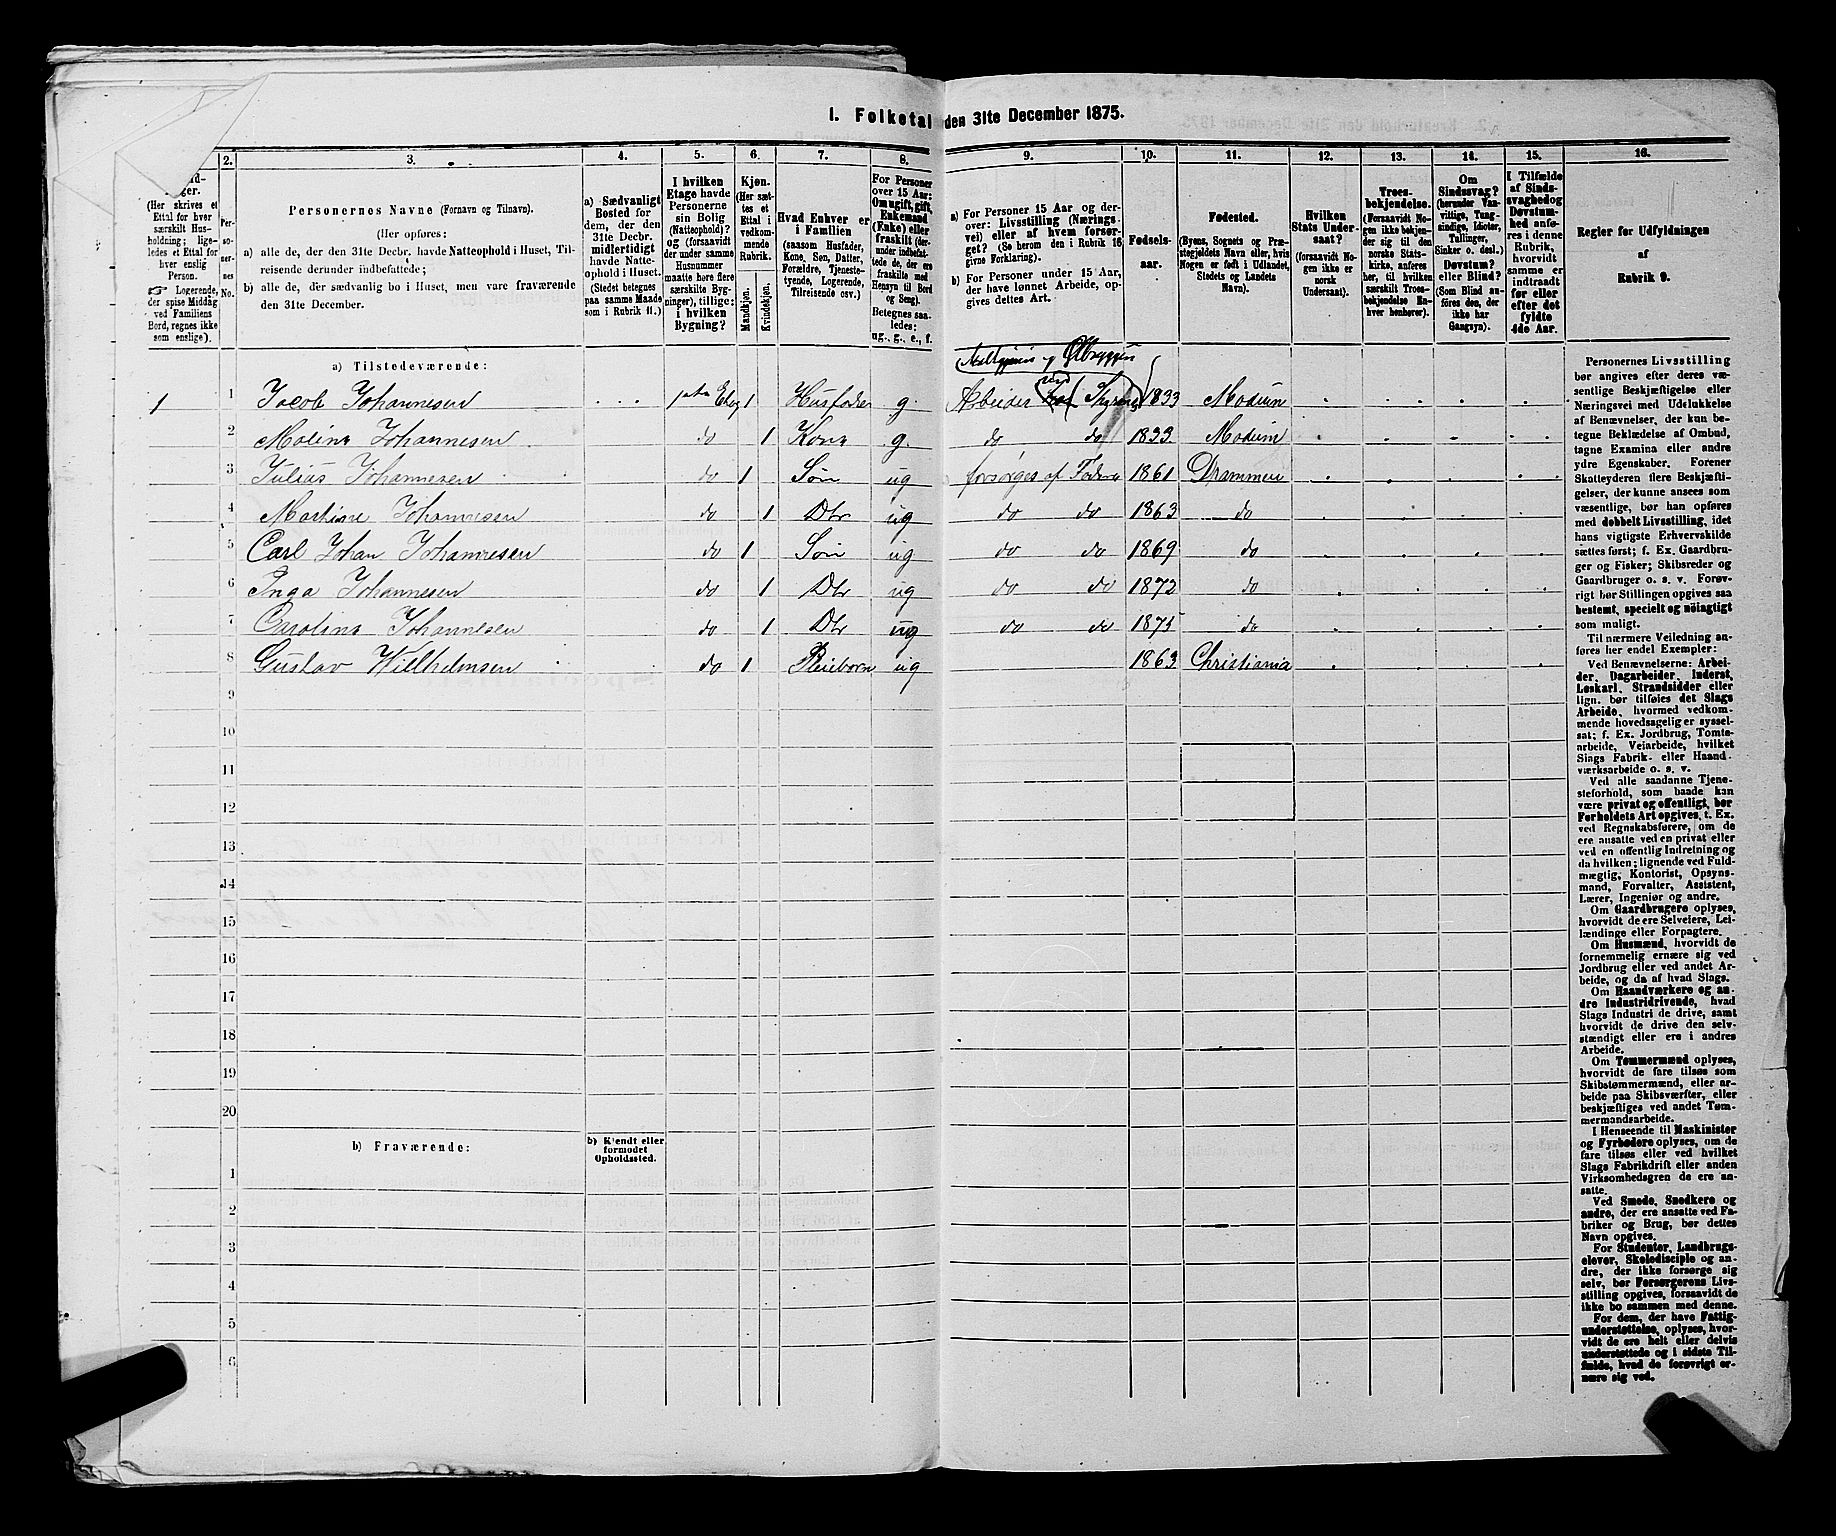 I. Folketal den 31te December 1875.
2. 3. 4. 5. 6. 7. 8. 9. 10. 11. 12. 13. 14. 15. 16.
(Her skrives et
Ettal for hver
særskilt Hus-
holdning; lige-
ledes et Ettal for
hver enslig
Person.
☞ Logerende,
der spise Middag
ved Familiens
Bord, regnes ikke
som enslige).
Per-
so-
ner-
nes
No.
Personernes Navne (Fornavn og Tilnavn).
(Her opføres:
a) alle de, der den 31te Decbr. havde Natteophold i Huset, Til-
reisende derunder indbefattede;
b) alle de, der sædvanlig bo i Huset, men vare fraværende
den 31te December.
a) Sædvanligt
Bosted for
dem, der den
31te Decbr.
midlertidigt
havde Natte-
ophold i Huset.
(Stedet betegnes
paa samme Maade
som i Rubrik 11.)
I hvilken
Etage havde
Personerne
sin Bolig
(Natteophold)?
og (forsaavidt
der under samme
Husnummer
maatte høre flere
særskilte Byg-
ninger), tillige:
i hvilken
Bygning?
Kjøn.
(Her sæt-
tes et
Ettal i
vedkom-
mende
Rubrik.
Mandkjøn.
Kvindekjøn.
Hvad Enhver er
i Familien
(saasom Husfader,
Kone, Søn, Datter,
Forældre, Tjeneste-
tyende, Logerende,
Tilreisende osv.)
For Personer
over 15 Aar:
Om ugift, gift,
Enkemand
(Enke) eller
fraskilt (der-
under indbefat-
tede de, der ere
fraskilte med
Hensyn til Bord
og Seng).
Betegnes saa-
ledes:
ug., g., e., f.
a) For Personer 15 Aar og der-
over: Livsstilling (Nærings-
vei) eller af hvem forsør-
get? (Se herom den i Rubrik 16
givne Forklaring).
b) For Personer under 15 Aar,
der have lønnet Arbeide, op-
gives dettes Art.
Fødsels-
aar.
Fødested.
(Byens, Sognets og Præ-
stegjeldets Navn eller, hvis
Nogen er født i Udlandet,
Stedets og Landets
Navn).
Hvilken
Stats Under-
saat?
(forsaavidt No-
gen ikke er
norsk
Undersaat).
Troes-
bekjendelse.
(Forsaavidt No-
gen ikke bekjen-
der sig til den
norske Stats-
kirke, anføres
her, til hvilken
særskilt Troes-
bekjendelse En-
hver henhører).
Om
Sindssvag?
(herunder Van-
vittige, Tung-
sindige, Idioter,
Tullinger,
Sinker o. desl.)
Døvstum?
eller Blind?
(Som Blind an-
føres den, der
ikke har
Gangsyn).
I Tilfælde
af Sinds-
svaghed og
Døvstum-
hed anfø-
res i denne
Rubrik,
hvorvidt
samme er
indtraadt
før eller
efter det
fyldte
4de Aar.
Regler for Udfyldningen
af
Rubrik 9.
a) Tilstedeværende:
Ølbryggeri
1 1 Jacob Johannesen 1 Husfader g. Arbeider 1833 Modum
2 Maline Johannesen do 1 Kone g. do do 1833 Modum
3 Julius Johannesen do 1 Søn ug forsørges af Fader 1861 Drammen
4 Martine Johannesen do 1 Dtr ug do do 1863 do
5 Carl Johan Johannesen do 1 Søn ug do do 1869 do
6 Inga Johannesen do 1 Dtr ug do do 1872 do
7 Caroline Johannesen do 1 Dtr ug do do 1875 do
8 Gustav Wilhelmsen do 1 Pleiebarn ug 1863 Christiania
9
10
11
12
13
14
15
16
17
18
19
20
b) Fraværende:
b) Kjendt eller
formodet
Opholdssted.
1
2
3
4
5
6
Personernes Livsstilling
bør angives efter deres væ-
sentlige Beskjæftigelse eller
Næringsvei med Udelukkelse
af Benævnelser, der kun be-
tegne Beklædelse af Ombud,
tagne Examina eller andre
ydre Egenskaber. Forener
Skatteyderen flere Beskjæfti-
gelser, der kunne ansees som
væsentlige, bør han opføres
med dobbelt Livsstilling, idet
hans vigtigste Erhvervskilde
sættes først; f. Ex. Gaardbru-
ger og Fisker; Skibsreder og
Gaardbruger o. s. v. Forøv-
rigt bør Stillingen opgives saa
bestemt, specielt og nöiagtigt
som muligt.
Til nærmere Veiledning an-
føres her endel Exempler:
Ved Benævnelserne: Arbei-
der, Dagarbeider, Inderst,
Løskarl, Strandsidder eller
lign. bør tilføies det Slags
Arbeide, hvormed vedkom-
mende hovedsagelig er syssel-
sat; f. Ex. Jordbrug, Tomte-
arbeide, Veiarbeide, hvilket
Slags Fabrik- eller Haand-
værksarbeide o. s. v.
Ved alle saadanne Tjene-
steforhold, som baade kan
være privat og offentligt, bør
Forholdets Art opgives, f. Ex.
ved Regnskabsførere, om de
ere ansatte ved en privat eller
ved en offentlig Indretning og
da hvilken; lignende ved Fuld-
mægtig, Kontorist, Opsyns-
mand, Forvalter, Assistent,
Lærer, Ingeniør og andre.
Om Gaardbrugere oplyses,
hvorvidt de ere Selveiere, Lei-
lændinge eller Forpagtere.
Om Husmænd, hvorvidt de
fornemmelig ernære sig ved
Jordbrug eller ved andet Ar-
beide, og da af hvad Slags.
Om Haandværkere og an-
dre Industridrivende, hvad
Slags Industri de drive, samt
hvorvidt de drive den selv-
stændigt eller ere i andres
Arbeide.
Om Tømmermænd oplyses,
hvorvidt de fare tilsøs som
Skibstømmermænd, eller ar-
beide paa Skibsværfter, eller
beskjæftiges ved andet Tøm-
mermandsarbeide.
I Henseende til Maskinister
og Fyrbødere oplyses, om de
fare tilsøs eller ved hvilket
Slags Fabrikdrift eller anden
Virksomhedsgren de ere an-
satte.
Ved Smede, Snedkere og
andre, der ere ansatte ved Fa-
briker og Brug, bør dettes
Navn opgives.
For Studenter, Landbrugs-
elever, Skoledisciple og an-
dre, der ikke forsørge sig
selv, bør Forsørgerens Livs-
stilling opgives, forsaavidt de
ikke bo sammen med denne.
For dem, der have Fattig-
understøttelse, oplyses, hvor-
vidt de ere helt eller delvis
understøttede og i sidste Til-
fælde, hvad de forøvrigt er-
nære sig ved.